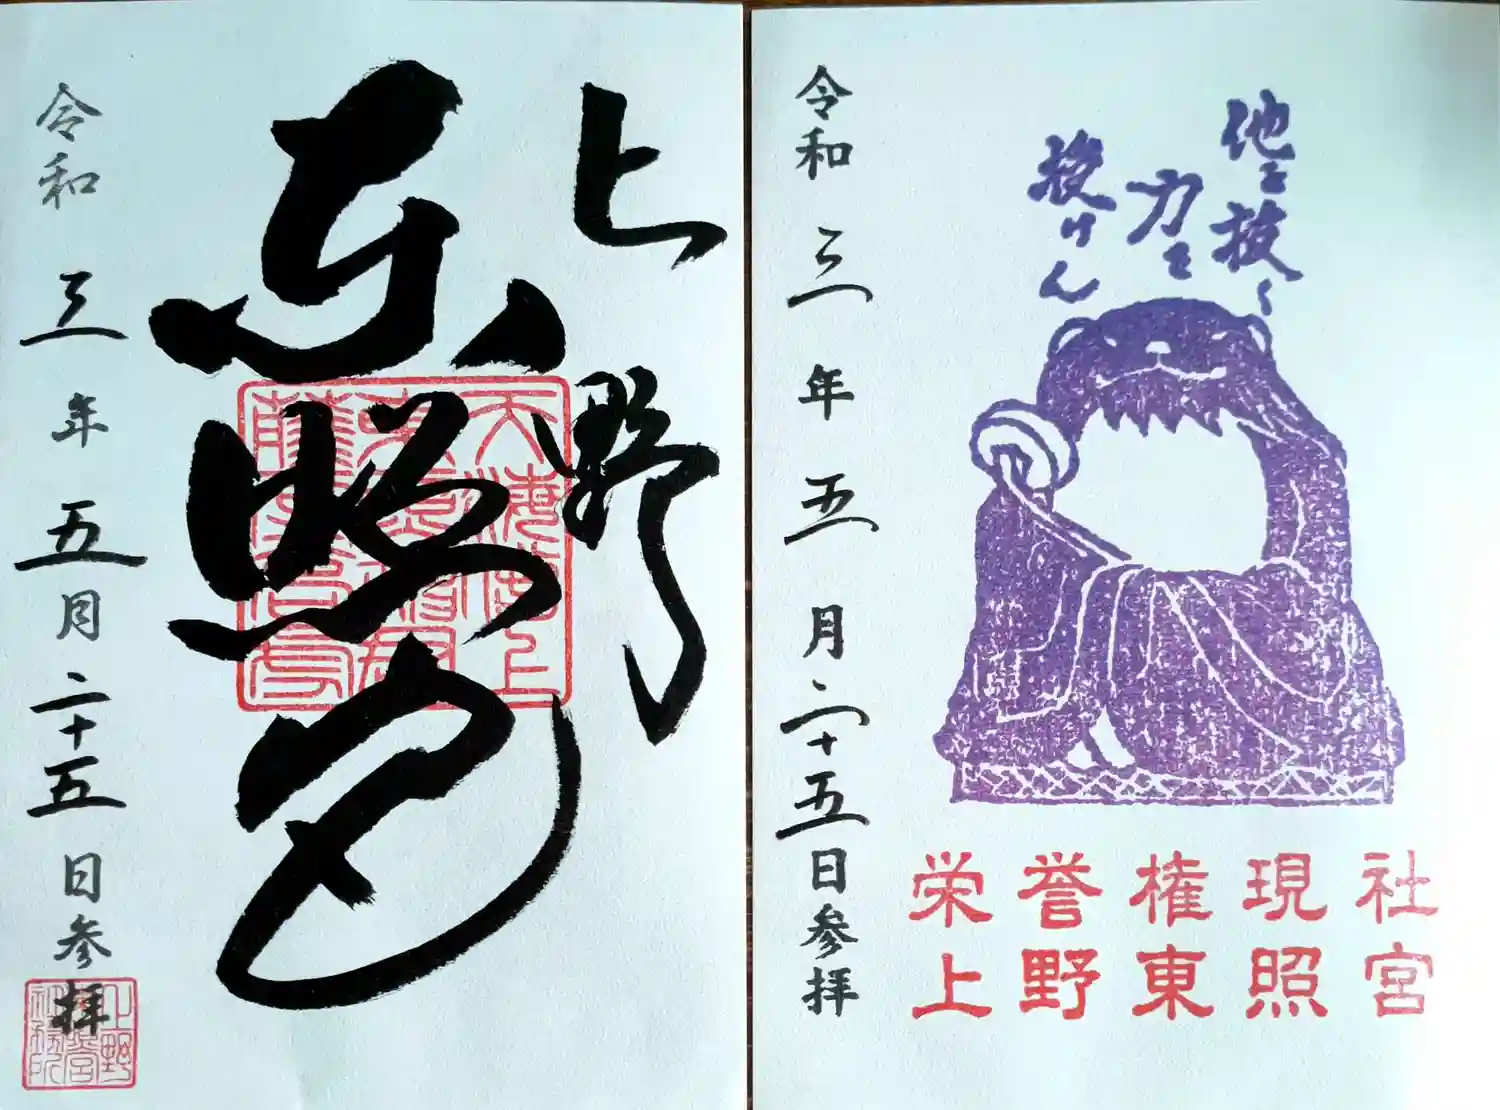 上野
東照宮
令和三年五月二十五日参拝
他を抜く
力を
授けん
令和三年五月二十五日参拝
栄誉権現社
上野東照宮